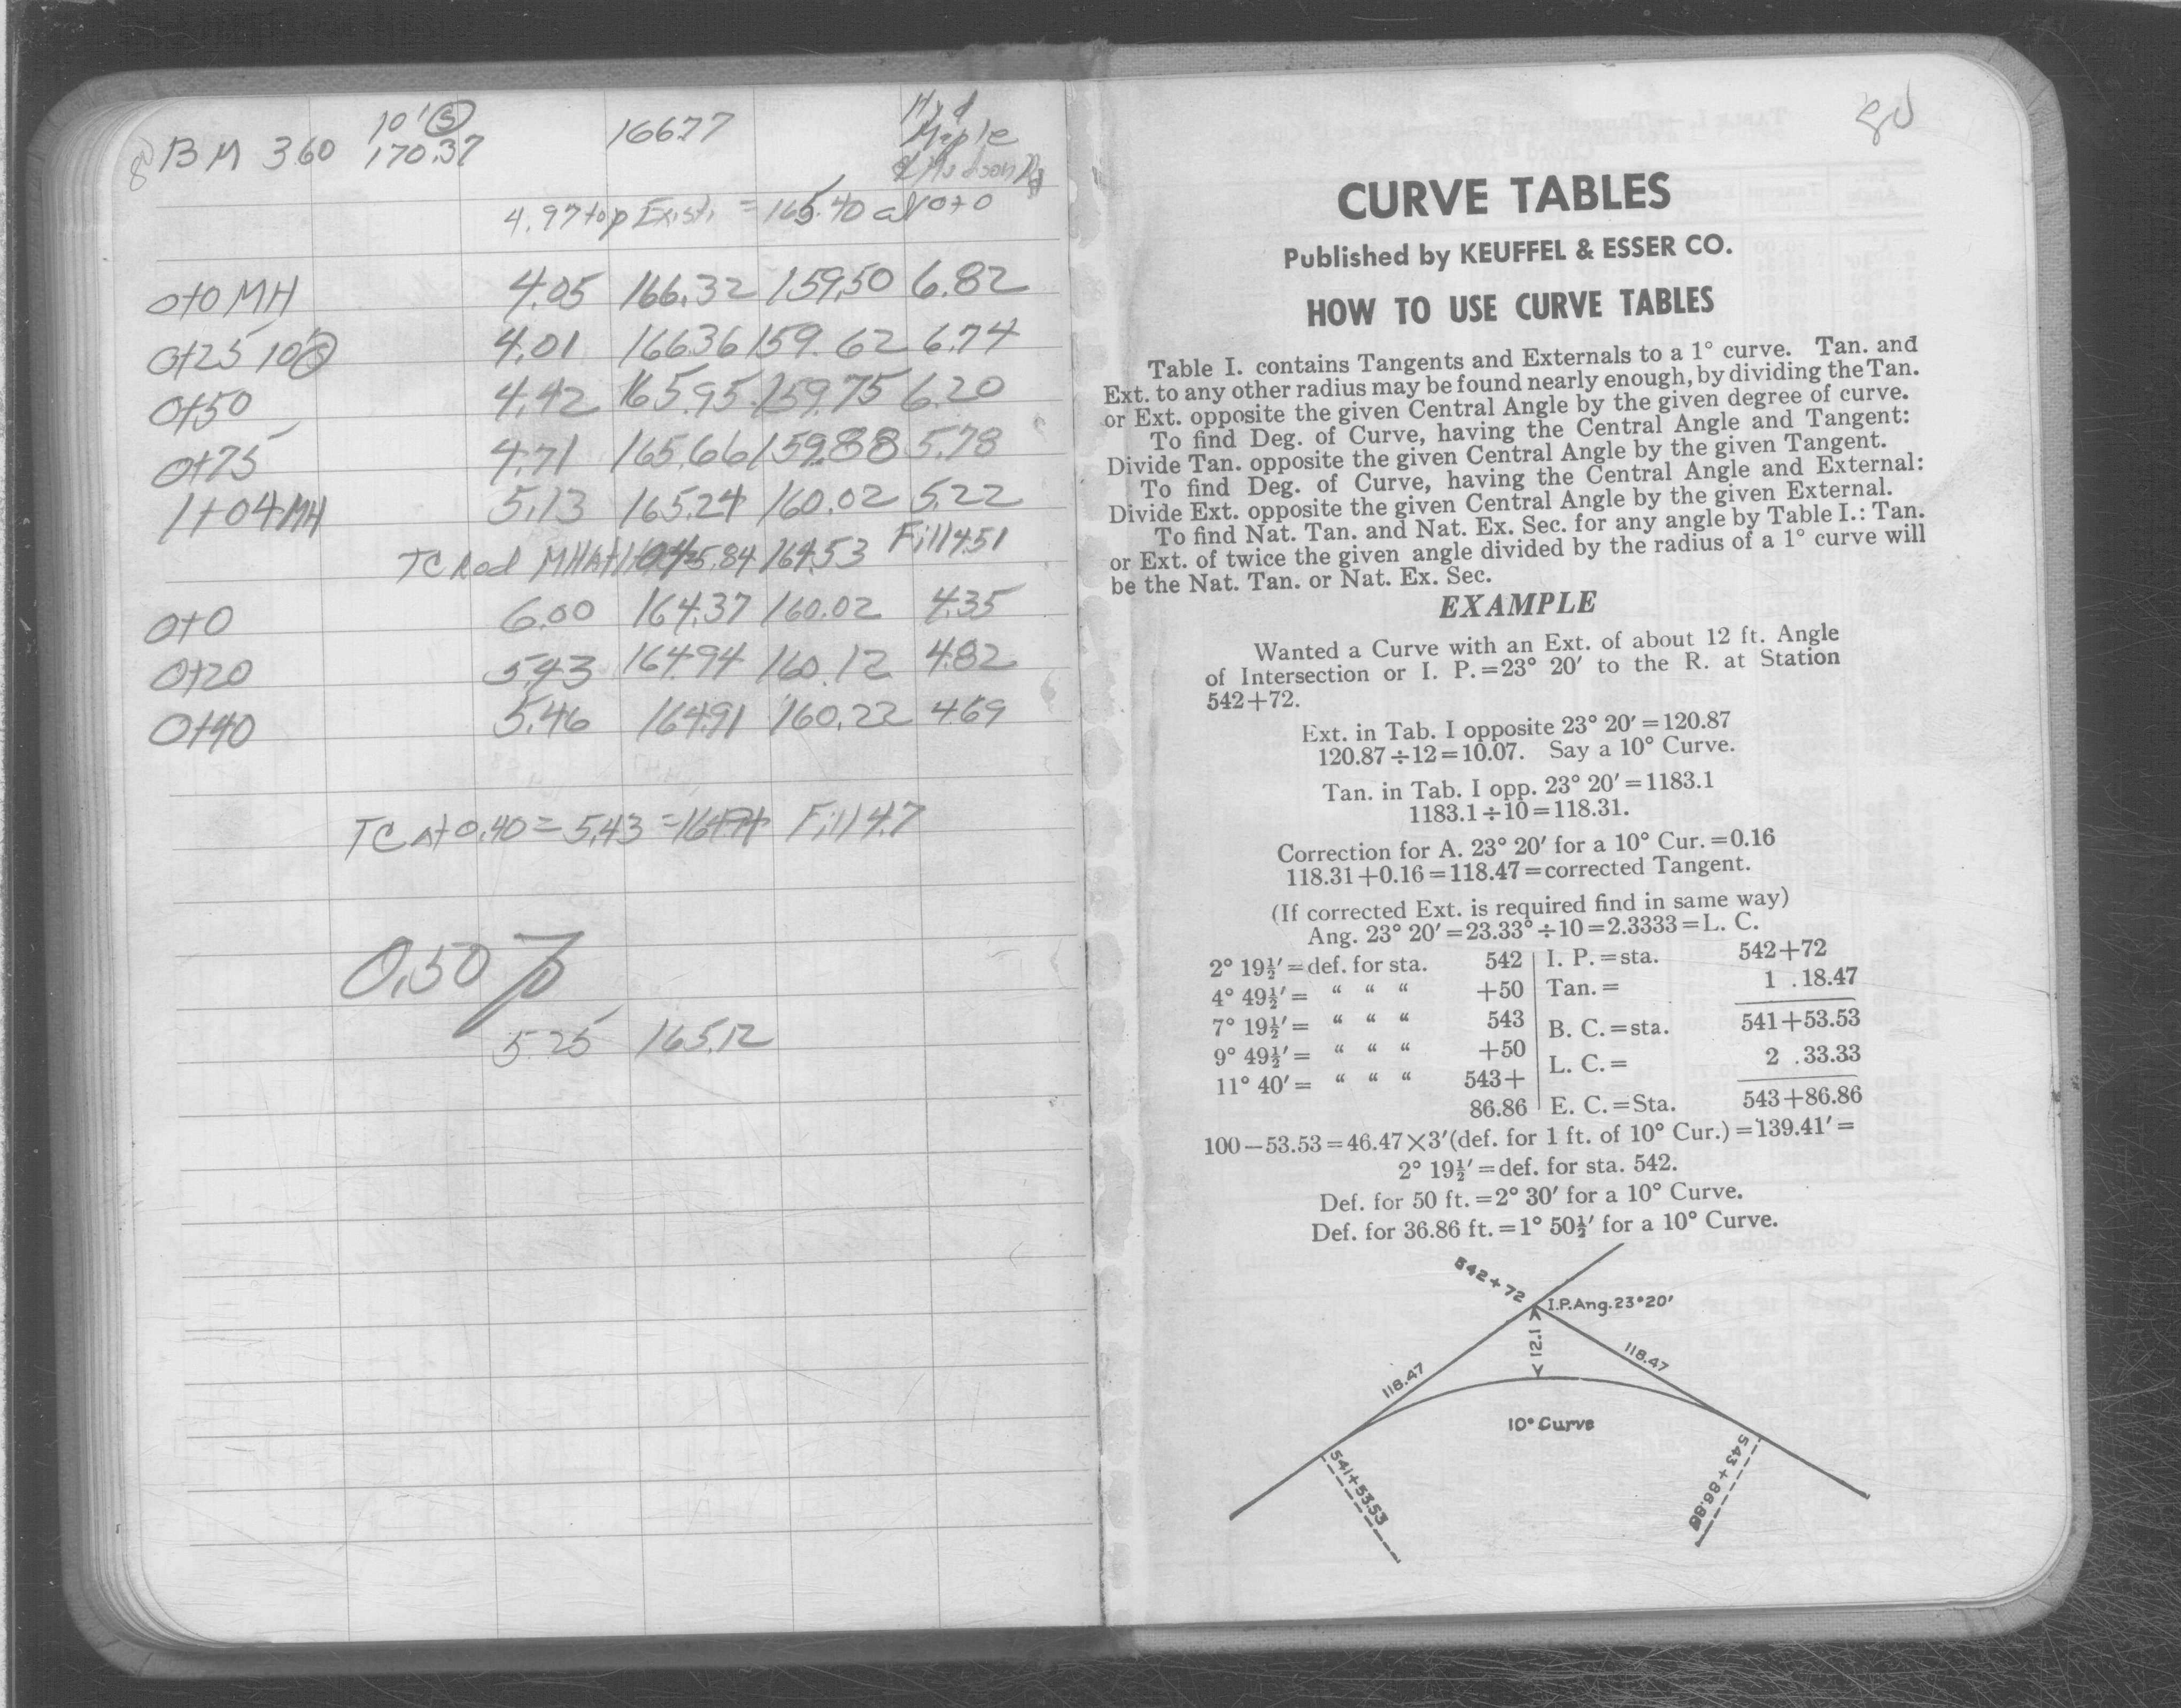 BM 3.60 10' Ⓢ 170.37 166.77 Hyd
Maple
& Hudson Rd
4.97 top Exist. = 165.40 at 0+0
0+0 MH 4.05 166.32 159.50 6.82
0+25 10' Ⓢ 4.01 166.36 159.62 6.74
0+50 4.42 165.95 159.75 6.20
0+75 4.71 165.66 159.88 5.78
1+04 MH 5.13 165.24 160.02 5.22
TC Rod MH At 1+04 5.84 164.53 Fill 4.51
0+0 6.00 164.37 160.02 4.35
0+20 5.43 164.94 160.12 4.82
0+40 5.46 164.91 160.22 4.69
TC At 0.40 = 5.43 = 164.94 Fill 4.7
0.50 %
5.25 165.12
80
CURVE TABLES
Published by KEUFFEL & ESSER CO.
HOW TO USE CURVE TABLES
Table I. contains Tangents and Externals to a 1° curve. Tan. and
Ext. to any other radius may be found nearly enough, by dividing the Tan.
or Ext. opposite the given Central Angle by the given degree of curve.
To find Deg. of Curve, having the Central Angle and Tangent:
Divide Tan. opposite the given Central Angle by the given Tangent.
To find Deg. of Curve, having the Central Angle and External:
Divide Ext. opposite the given Central Angle by the given External.
To find Nat. Tan. and Nat. Ex. Sec. for any angle by Table I.: Tan.
or Ext. of twice the given angle divided by the radius of a 1° curve will
be the Nat. Tan. or Nat. Ex. Sec.
EXAMPLE
Wanted a Curve with an Ext. of about 12 ft. Angle
of Intersection or I. P.=23° 20′ to the R. at Station
542+72.
Ext. in Tab. I opposite 23° 20′=120.87
120.87÷12=10.07. Say a 10° Curve.
Tan. in Tab. I opp. 23° 20′=1183.1
1183.1÷10=118.31.
Correction for A. 23° 20′ for a 10° Cur.=0.16
118.31+0.16=118.47=corrected Tangent.
(If corrected Ext. is required find in same way)
Ang. 23° 20′=23.33°÷10=2.3333=L. C.
2° 19½′=def. for sta. 542 I. P.=sta. 542+72
4° 49½′= “ “ “ +50 Tan.= 1 .18.47
7° 19½′= “ “ “ 543 B. C.=sta. 541+53.53
9° 49½′= “ “ “ +50 L. C.= 2 .33.33
11° 40′= “ “ “ 543+
86.86 E. C.=Sta. 543+86.86
100−53.53=46.47×3′(def. for 1 ft. of 10° Cur.)=139.41′=
2° 19½′=def. for sta. 542.
Def. for 50 ft.=2° 30′ for a 10° Curve.
Def. for 36.86 ft.=1° 50½′ for a 10° Curve.
542+72
I.P.Ang.23°20′
12.1
118.47
118.47
10° Curve
541+53.53
543+86.86